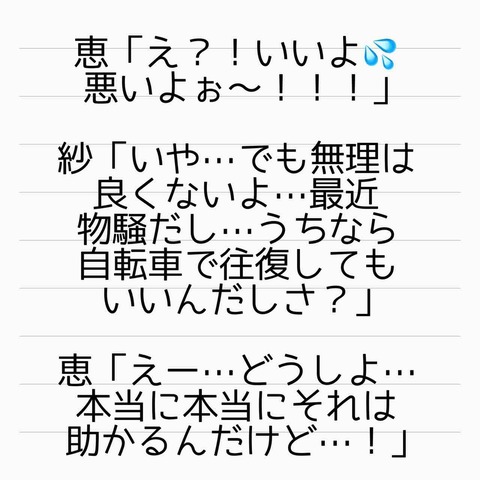 恵「え？！いいよ💦
悪いよぉ〜！！！」
紗「いや…でも無理は
良くないよ…最近
物騒だし…うちなら
自転車で往復しても
いいんだしさ？」
恵「えー…どうしよ…
本当に本当にそれは
助かるんだけど…！」